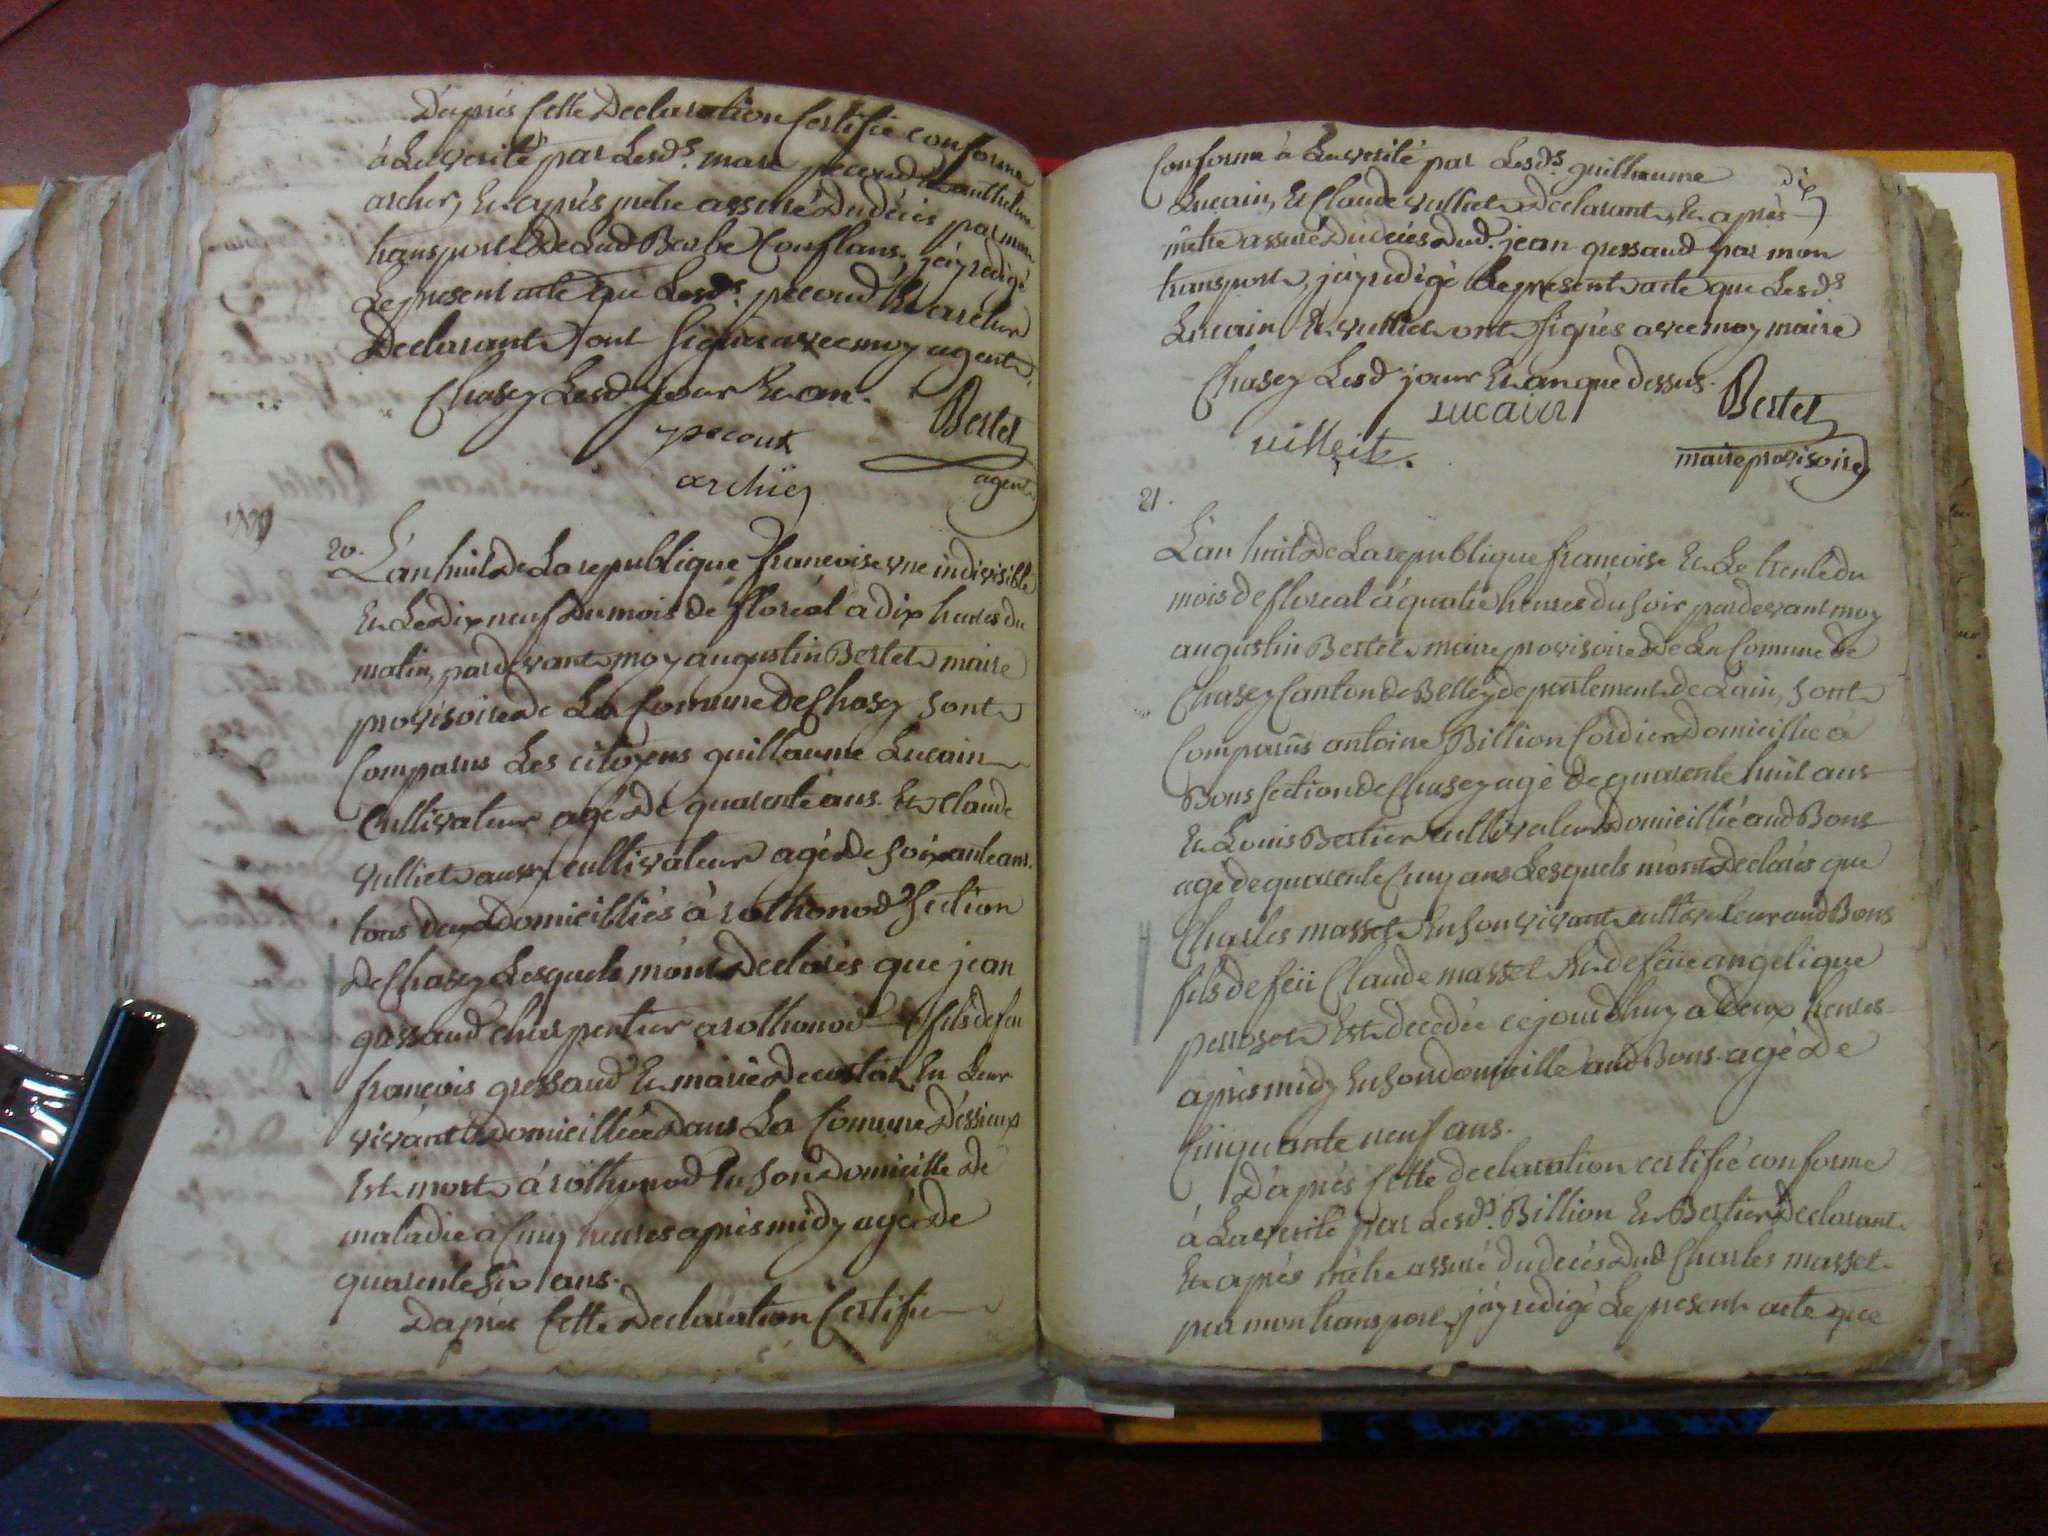 D'aprés Cette Declaration Certifié conforme
à La verité par Lesds. marc pecoud & anthelme
archer, Et aprés m'etre assuré Du décés par mon
transport De Lad Barbe Conflans, j'ay redigé
Le present acte que Lesds. pecoud Et archer
Declarant, ont signés avec moy agent
Chasey Lesd jour Et an.
Bertet
pecout
archier
agent
20. L'an huit De La republique francoise une indivisible
Et Le Dix neuf Du mois de floréal a dix heures du
matin, pardevant moy augustin Bertet maire
provisoire De La Comune De Chasey sont
Comparus Les citoyens guillaume Lucain
Cultivateur agé De quarente ans. Et Claude
Vulliet aussy cultivateur agé de soixante ans.
tous deux Domicilliés à rothonod section
De Chasey Lesquels m'ont Declarés que jean
gressaud charpentier a rothonod fils de feu
francois gressaud Et marie Decostaz En Leur
vivant Domicilliée Dans La Comune D'essieux
Est mort à rothonod En son Domicille de
maladie à Cinq heures aprés midy agé de
quarente six ans.
D'aprés Cette Declaration Certifié
Conforme à La verité par Lesds. guillaume
Lucain, Et Claude vulliet Declarant, Et aprés
m'etre assuré Du décés Dud. jean gressaud par mon
transport, j'ay redigé Le present acte que Lesds
Lucain Et vulliet ont signés avec moy maire
Chasey Lesd jour Et an que dessus.
Lucain
Bertet
villeit.
maire provisoire
21.
L'an huit De La republique francoise Et Le trente du
mois de floréal à quatre heures du soir pardevant moy
augustin Bertet maire provisoire De La Comune de
Chasey Canton de Belley departement de L'ain, sont
Comparus antoine Billion Cordier Domicillié à
Bons section de Chasey agé de quarente huit ans
Et Louis Bertier cultivateur Domicillié aud Bons
agé de quarente Cinq ans Lesquels m'ont Declarés que
Charles masset En son vivant cultivateur aud Bons
fils de feu Claude masset Et de feüe angelique
perroset Est decedé cejourdhuy a Deux heures
aprés midy En son domicille aud Bons agé De
Cinquante neuf ans.
D'aprés Cette declaration certifié conforme
à La verité par Lesds. Billion Et Bertier Declarant
Et aprés m'etre assuré du décés Dud Charles masset
par mon transport, j'ay redigé Le present acte que